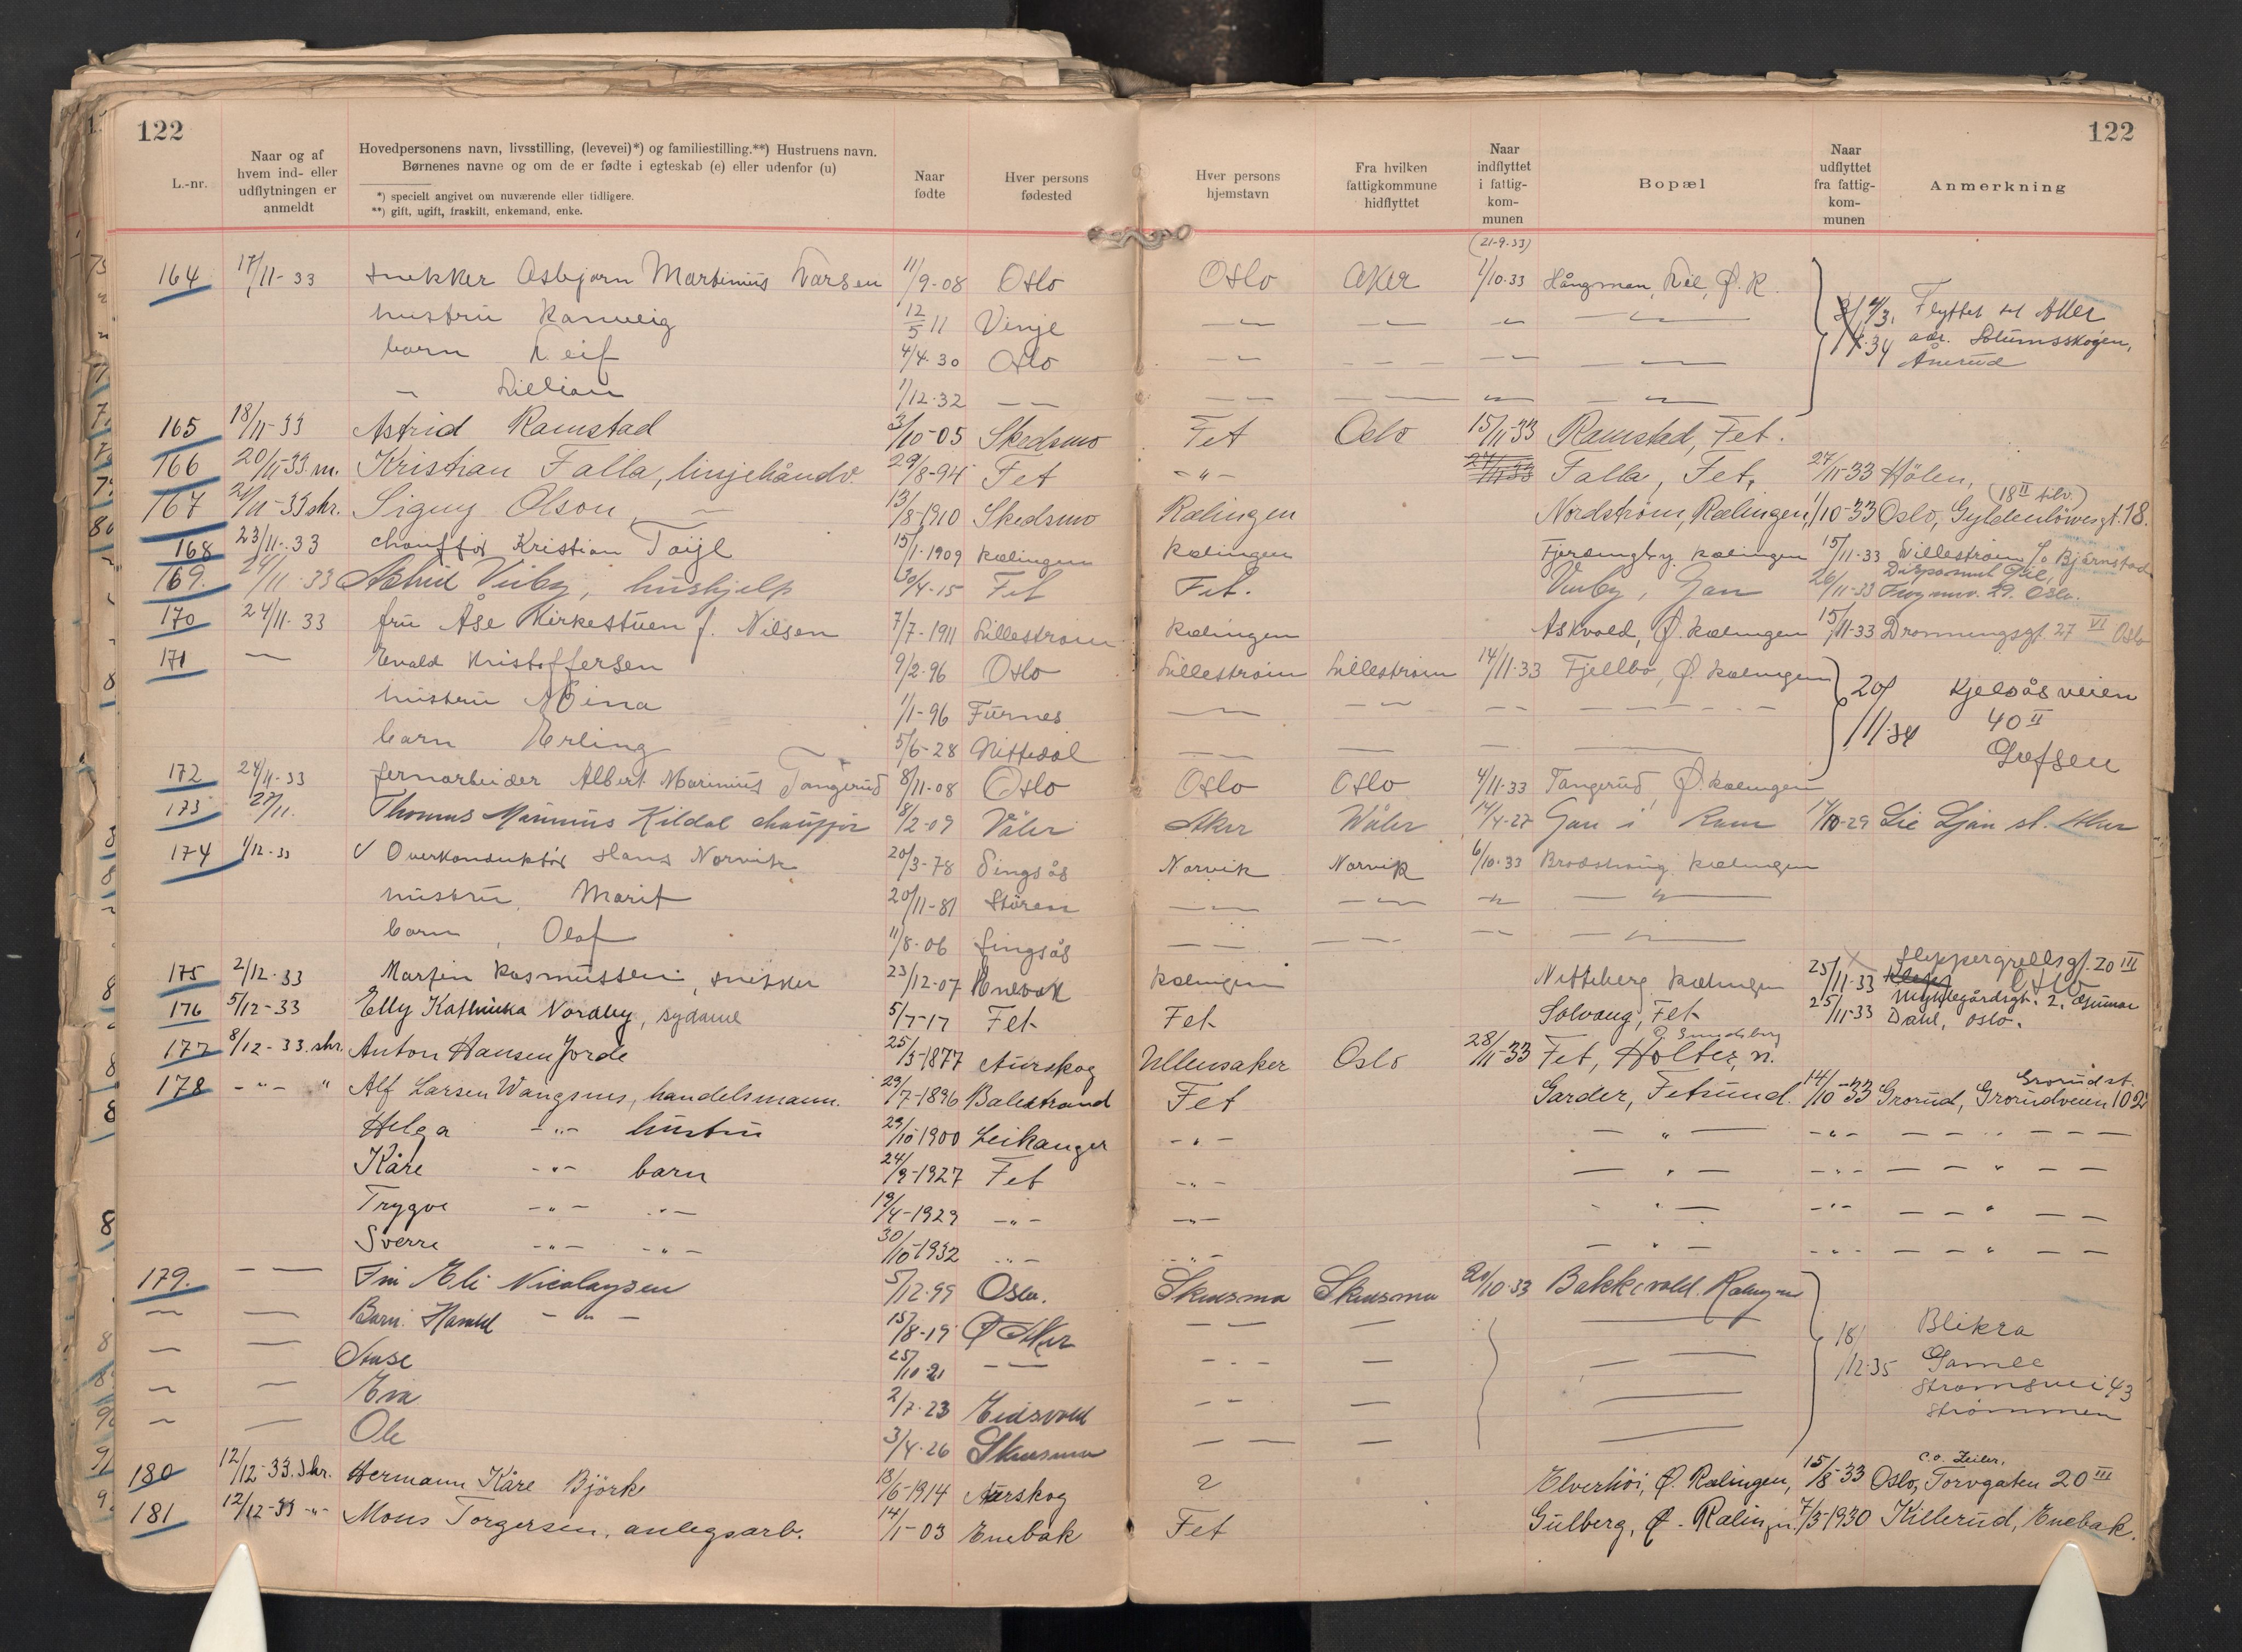 122
122
L.-nr.
Naar og af hvem ind- eller udflytningen er anmeldt
Hovedpersonens navn, livsstilling, (levevei)*) og familiestilling.**) Hustruens navn.
Børnenes navne og om de er fødte i egteskab (e) eller udenfor (u)
*) specielt angivet om nuværende eller tidligere.
**) gift, ugift, fraskilt, enkemand, enke.
Naar fødte
Hver persons fødested
Hver persons hjemstavn
Fra hvilken fattigkommune hidflyttet
Naar indflyttet i fattig-kom-munen
Bopæl
Naar udflyttet fra fattig-kom-munen
Anmerkning
(21-9-33)
164 17/11-33 snekker Asbjørn Martinius Larsen 11/9-08 Oslo Oslo Aker 1/10-33 Hångman, Lil, Ø. R. 4/3-34 Flyttet til Aker
hustru Ranveig 12/5 11 Vinje adr. Solumsskogen,
barn Leif 4/4-30 Oslo Ånerud
Lillian 1/12-32 — —
165 18/11-33 Astrid Ramstad 3/10-05 Skedsmo Fet Oslo 15/11-33 Ramstad, Fet.
166 20/11-33 m. Kristian Falla, linjehåndv. 29/8-94 Fet -"- 27/11-33 Falla, Fet, 27/11-33 Hölen,
167 21/11-33 skr. Signy Olson 13/8-1910 Skedsmo Rælingen Nordstrøm, Rælingen, 1/10-33 Oslo, Gyldenlöwesgt. 18.
168 23/11-33 chauffør Kristian Toijl 15/1-1909 Rælingen Rælingen Fjerdingby, Rælingen 15/11-33 Lillestrøm c/o Bjørnstad
169. 24/11-33 Astrid Viuby, hushjelp 30/4-15 Fet Fet. Viuby, Gan 26/11-33 Frognerv. 29. Oslo.
170 24/11-33 fru Åse Kirkestuen f. Nilsen 7/7-1911 Lillestrøm Rælingen Askvold, Ø. Rælingen 15/11-33 Dronningsgt. 27 VI Oslo
171 — Evald Kristoffersen 9/2-96 Oslo Lillestrøm Lillestrøm 14/11-33 Fjellbo, Ø. Rælingen 20/11-34 Kjelsåsveien
hustru Mina 1/1-96 Furnes 40 II
barn Erling 5/6-28 Nittedal Grefsen
172 24/11-33 jernarbeider Albert Marinius Tangerud 8/11-08 Oslo Oslo Oslo 4/11-33 Tangerud, Ø. Rælingen
173 27/11. Thomas Marinius Kildal chauffør 8/2-09 Våler Aker Wåler 14/4-27 Gan i Ram 14/10-29 Lie Ljan st. Aker
174 1/12-33 Overkonduktør Hans Norvik 20/3-78 Singsås Narvik Narvik 6/10-33 Rælingen
hustru, Marit 20/11-81 Støren
barn, Olaf 11/8-06 Singsås
175 2/12-33 Martin Rasmussen, snekker 23/12-07 Enebak Rælingen Nitteberg Rælingen 25/11-33 Schleppegrellsgt. 20 III Oslo
176 5/12-33 Elly Kathinka Nordby, sydame 5/7-17 Fet Fet Solvang, Fet 25/11-33 Munkegårdsgt. 2. Gunnar Dahl, Oslo.
177 8/12-33. skr. Anton Hansen Jorde 25/3-1877 Aurskog Ullensaker Oslo 28/11-33 Fet, Holter, n.
178 -"- " Alf Larsen Wangsnes, handelsmann. 29/7-1896 Balestrand Fet Garder, Fetsund. 14/10-33 Grorud, Grorudveien 102 Grorud st.
Helga -"- hustru 29/10-1900 Leikanger -"-
Kåre -"- barn 24/9-1927 Fet -"-
Trygve -"- -"- 19/4-1929 -"- -"-
Sverre -"- -"- 30/10-1932 -"- -"-
179. — — Fru Eli Nicolaysen 5/12-99 Oslo. Skedsmo Skedsmo 20/10-33 Bakkevold. Rælingen
Barn: Harald -"- 15/8-19 Ø Aker 18/12-35 Blikra
Aase 25/10-21 Gamle
Eva 2/7-23 Eidsvold Strømsvei 43
Ole 3/4-26 Skedsmo Strømmen
180 12/12-33. skr. Hermann Kåre Björke 18/6-1914 Aurskog ? Elverhöi, Ø. Rælingen, 15/8-33 Oslo, Torvgaten 20 III c.o. Zeiler.
181 12/12-33 -"- Mons Torgersen, anlegsarb. 14/1-03 Enebak Fet Gulberg, Ø. Rælingen. 7/3-1930 Killerud, Enebak.